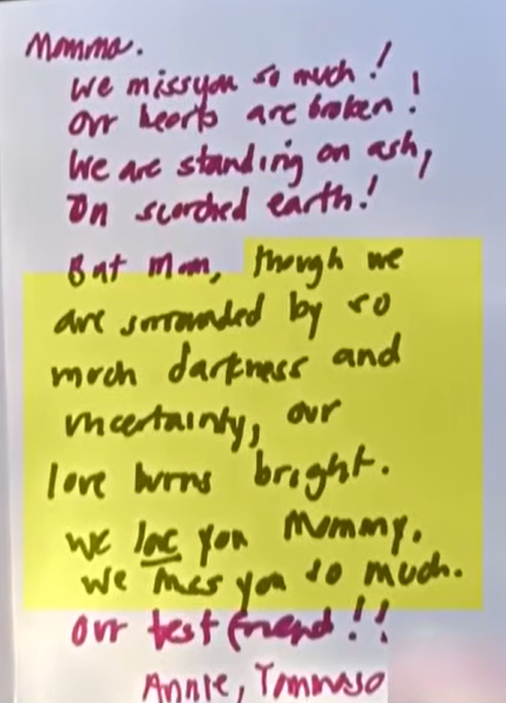 Momma.
We miss you so much!
Our hearts are broken!
We are standing on ash,
On scorched earth!
But Mom, though we
are surrounded by so
much darkness and
uncertainty, our
love burns bright.
We love you Mommy.
We miss you so much.
Our best friend!!
Annie, Tommaso